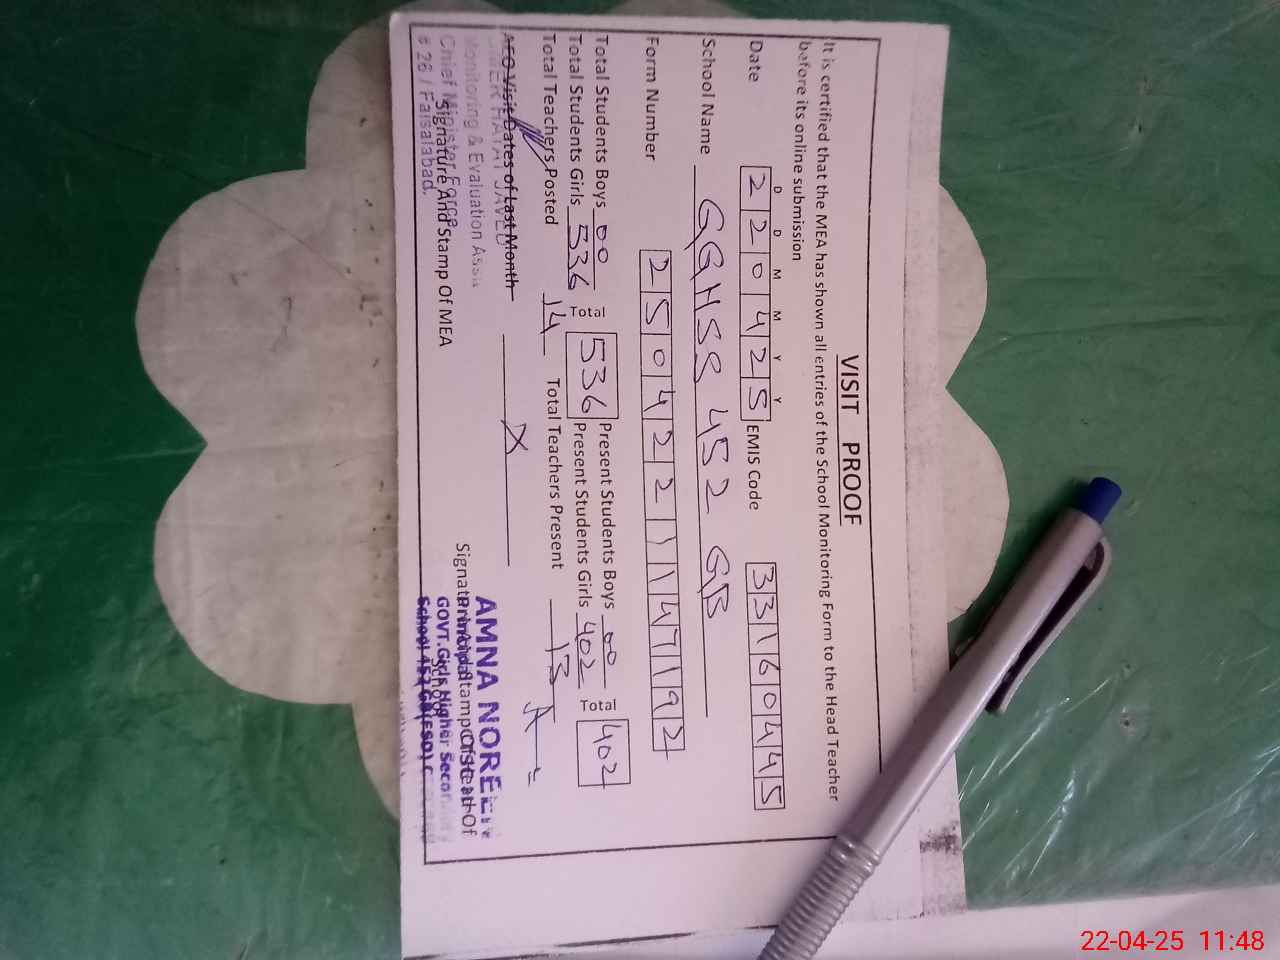 VISIT PROOF
It is certified that the MEA has shown all entries of the School Monitoring Form to the Head Teacher
before its online submission
D D M M Y Y
Date 220425 EMIS Code 33160445
School Name GGHSS 452 GB
Form Number 2504221147192
Total Students Boys 00 Present Students Boys 00
Total Students Girls 536 Total 536 Present Students Girls 402 Total 402
Total Teachers Posted 14 Total Teachers Present 13
AEO Visit Dates of Last Month X
JAVED
Monitoring & Evaluation Assis
Chief Minister Force
# 26 / Faisalabad.
Signature And Stamp Of MEA
AMNA NOREEN
Principal
GOVT. Girls Higher Secon
School 452 GB (FSD)
Of
School
22-04-25 11:48